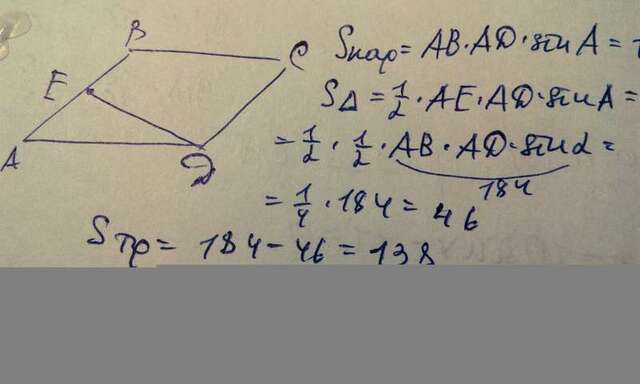 B
C
E
A
D
Sпар = AB · AD · sin A =
S△ = 1/2 · AE · AD · sin A =
= 1/2 · 1/2 · AB · AD · sin α =
184
= 1/4 · 184 = 46
Sтр = 184 - 46 = 138